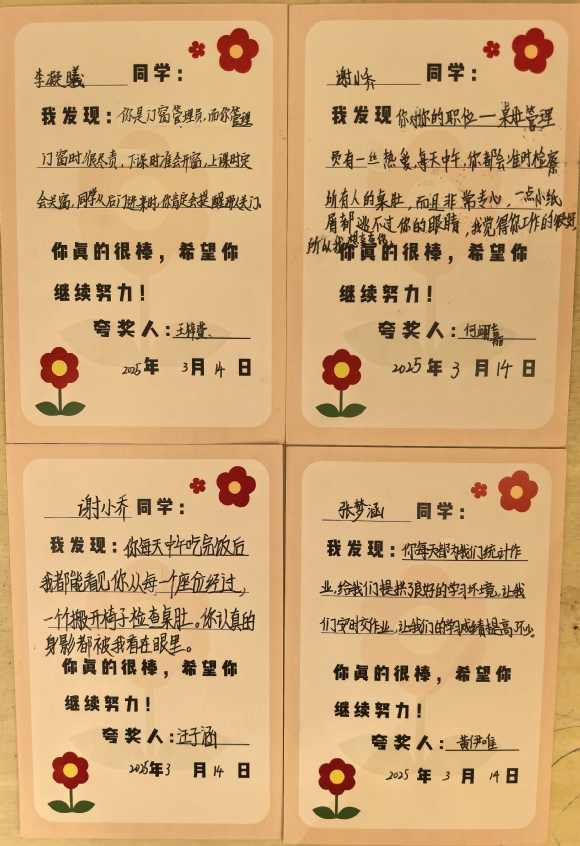 李凝曦 同学：
我发现：你是门窗管理员，而你管理
门窗时很尽责，下课时准会开窗，上课时定
会关窗，同学从后门进来时，你肯定会提醒ta关门。
你真的很棒，希望你
继续努力！
夸奖人：王梓萱
2025年 3月 14日
谢小乔 同学：
我发现 你对你的职位一桌肚管理
员有一丝热爱，每天中午，你都会准时检察
所有人的桌肚，而且非常专心，一点小纸
屑都逃不过你的眼睛，我觉得你工作的很好
所以我想夸夸你
你真的很棒，希望你
继续努力！
夸奖人：何嘉
2025年 3月 14日
谢小乔 同学：
我发现：你每天中午吃完饭后
我都能看见你从每一个座位经过，
一个个搬开椅子检查桌肚。你认真的
身影都被我看在眼里。
你真的很棒，希望你
继续努力！
夸奖人：汪子涵
2025年3月14日
张梦涵 同学：
我发现：你每天都为我们统计作
业，给我们提供了很好的学习环境，让我
们守时交作业，让我们的学习成绩提高不少。
你真的很棒，希望你
继续努力！
夸奖人：黄伊唯
2025年 3月 14日